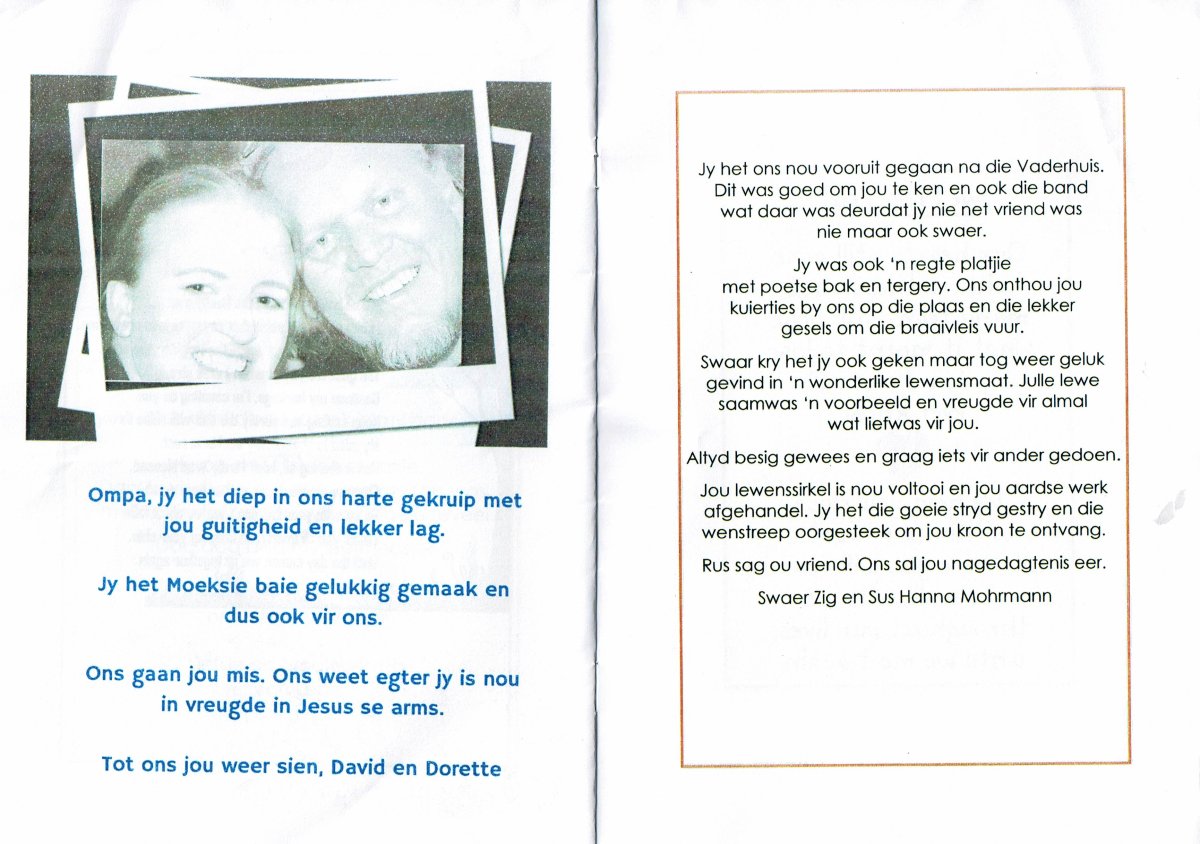 Ompa, jy het diep in ons harte gekruip met
jou guitigheid en lekker lag.
Jy het Moeksie baie gelukkig gemaak en
dus ook vir ons.
Ons gaan jou mis. Ons weet egter jy is nou
in vreugde in Jesus se arms.
Tot ons jou weer sien, David en Dorette
Jy het ons nou vooruit gegaan na die Vaderhuis.
Dit was goed om jou te ken en ook die band
wat daar was deurdat jy nie net vriend was
nie maar ook swaer.
Jy was ook ‘n regte platjie
met poetse bak en tergery. Ons onthou jou
kuierties by ons op die plaas en die lekker
gesels om die braaivleis vuur.
Swaar kry het jy ook geken maar tog weer geluk
gevind in ‘n wonderlike lewensmaat. Julle lewe
saamwas ‘n voorbeeld en vreugde vir almal
wat liefwas vir jou.
Altyd besig gewees en graag iets vir ander gedoen.
Jou lewenssirkel is nou voltooi en jou aardse werk
afgehandel. Jy het die goeie stryd gestry en die
wenstreep oorgesteek om jou kroon te ontvang.
Rus sag ou vriend. Ons sal jou nagedagtenis eer.
Swaer Zig en Sus Hanna Mohrmann